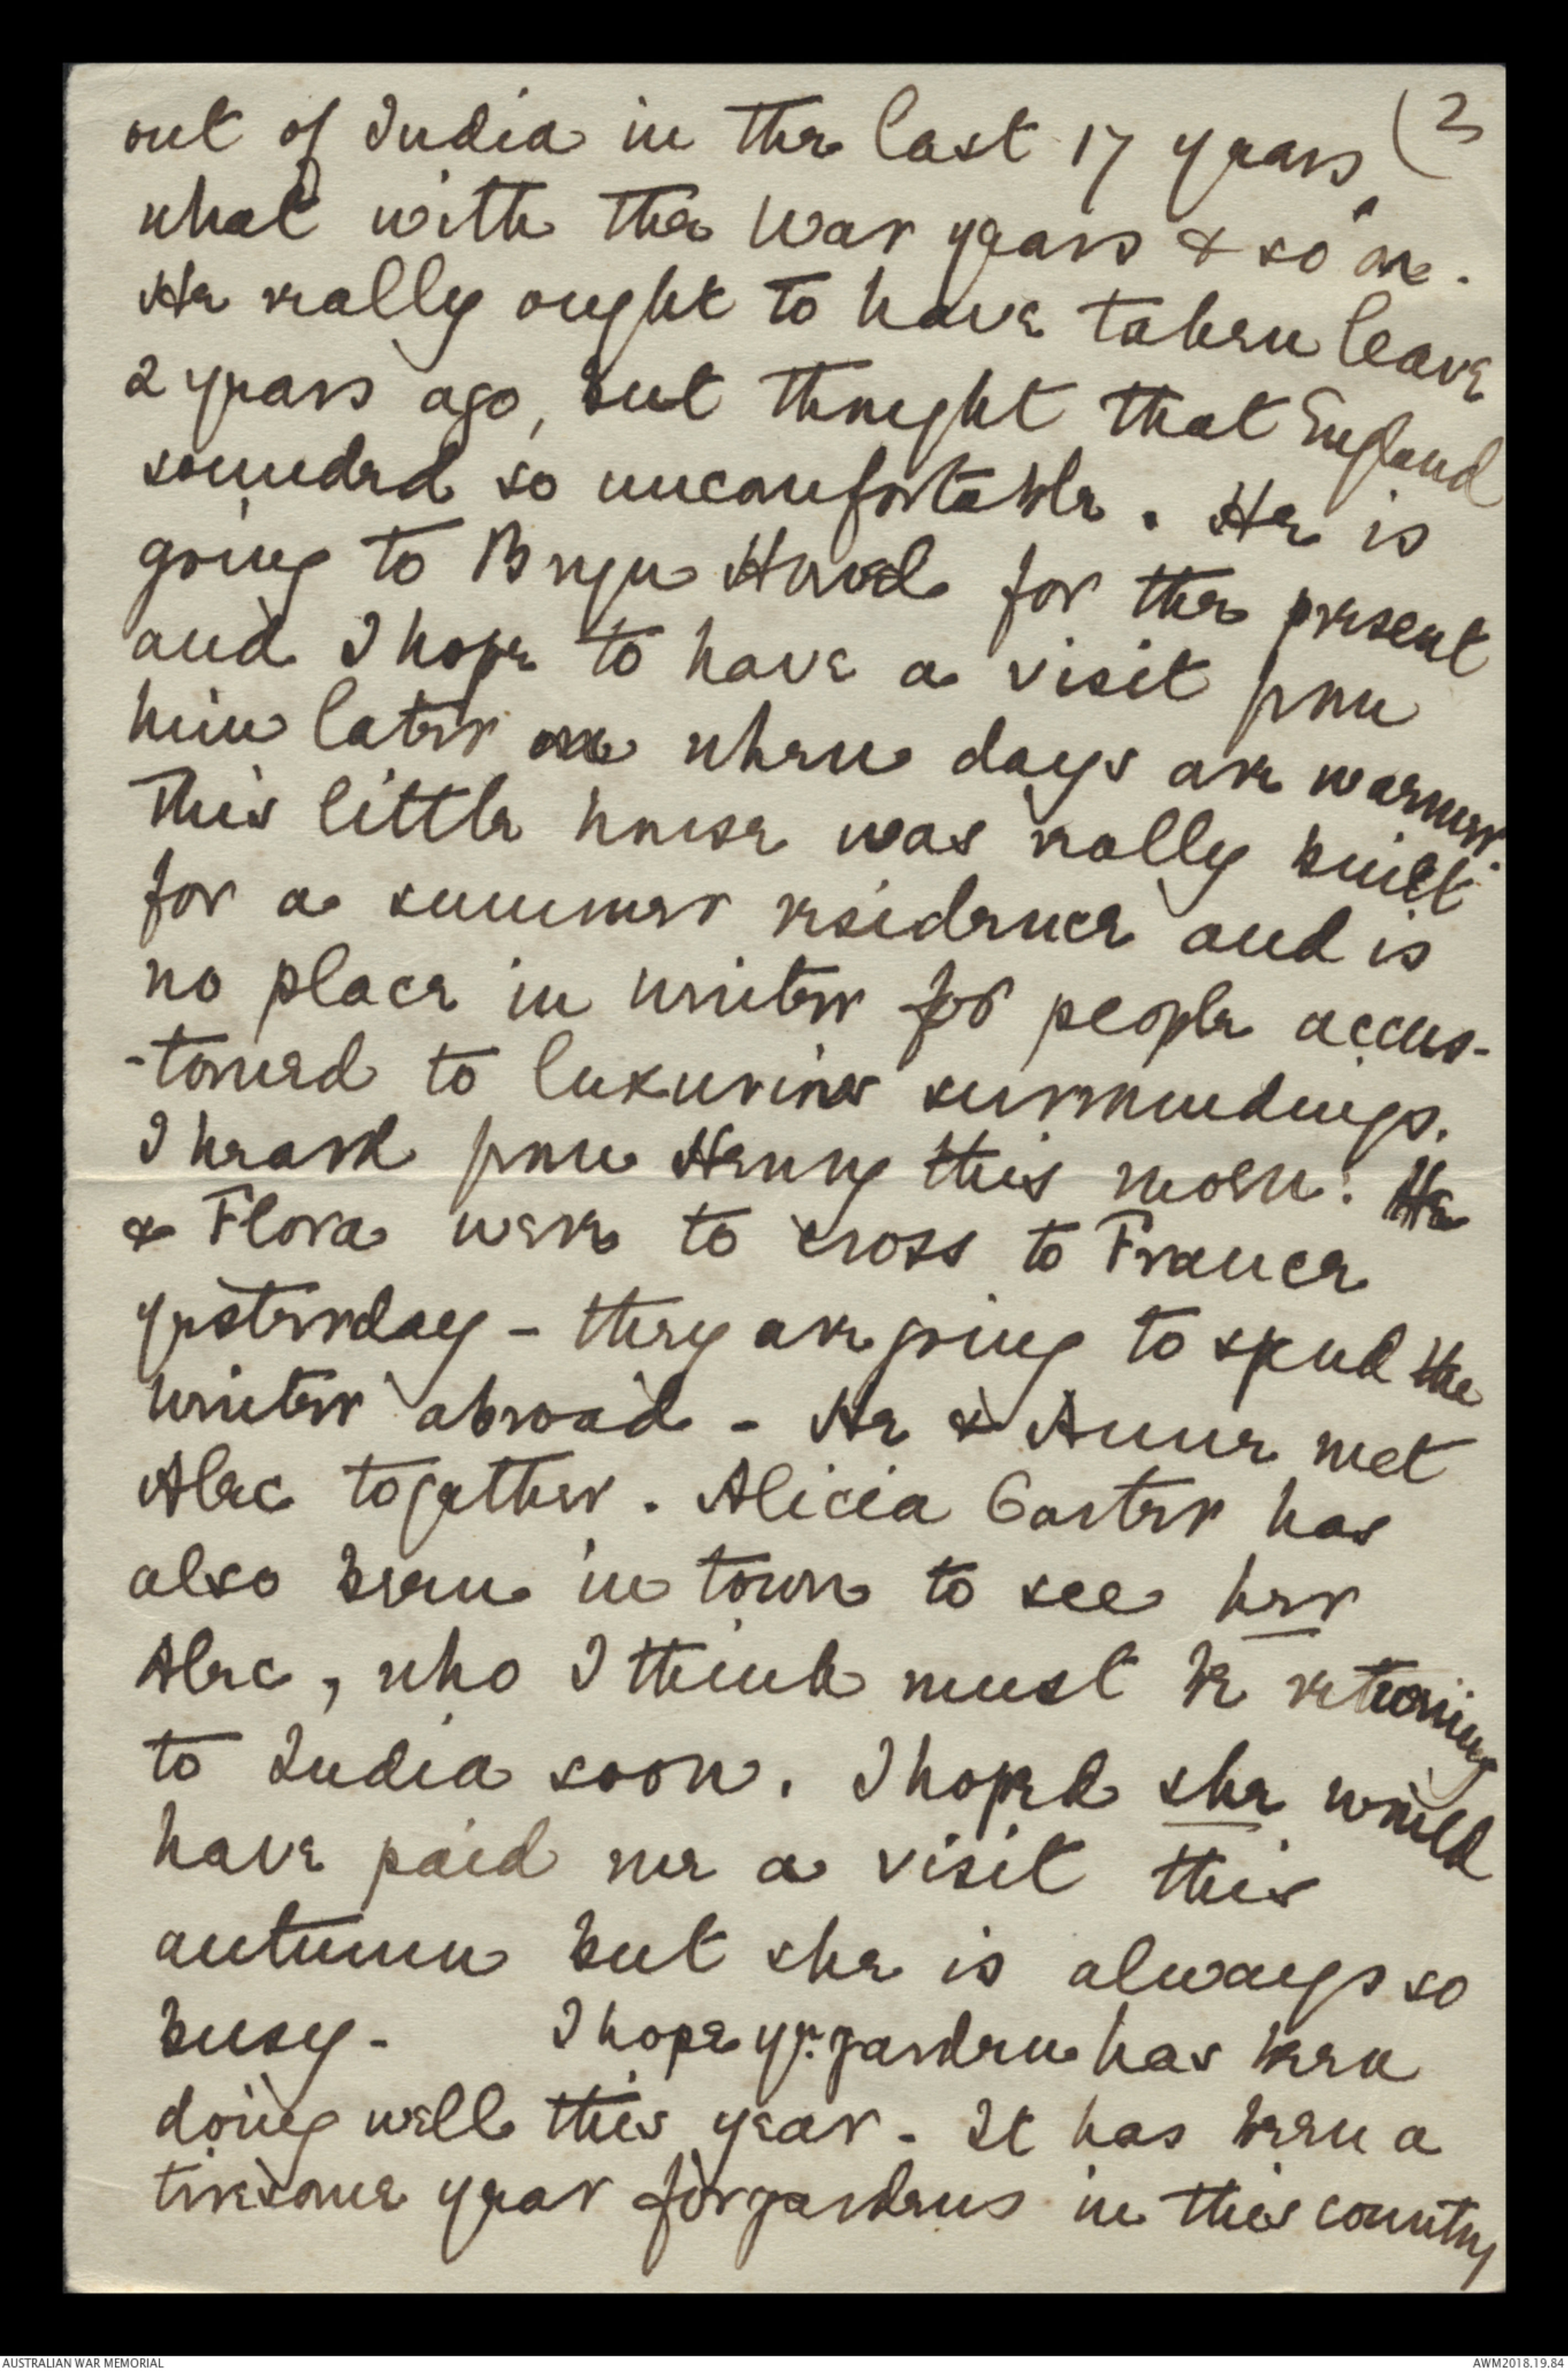 out of India in the last 17 years, (3
what with the War years & so on.
He really ought to have taken leave
2 years ago, but thought that England
sounded so uncomfortable. He is
going to Bryn Hovel for the present
and I hope to have a visit from
him later on when days are warmer.
This little house was really built
for a summer residence and is
no place in winter for people accus-
-tomed to luxurious surroundings.
I heard from Henry this morn: He
& Flora were to cross to France
yesterday - they are going to spend the
winter abroad - He & Anne met
Alec together. Alicia Garter has
also been in town to see her
Alec, who I think must be returning
to India soon. I hoped she would
have paid me a visit this
autumn but she is always so
busy - I hope yr. garden has been
doing well this year - It has been a
tiresome year for gardens in this country
AUSTRALIAN WAR MEMORIAL
AWM2018.19.84